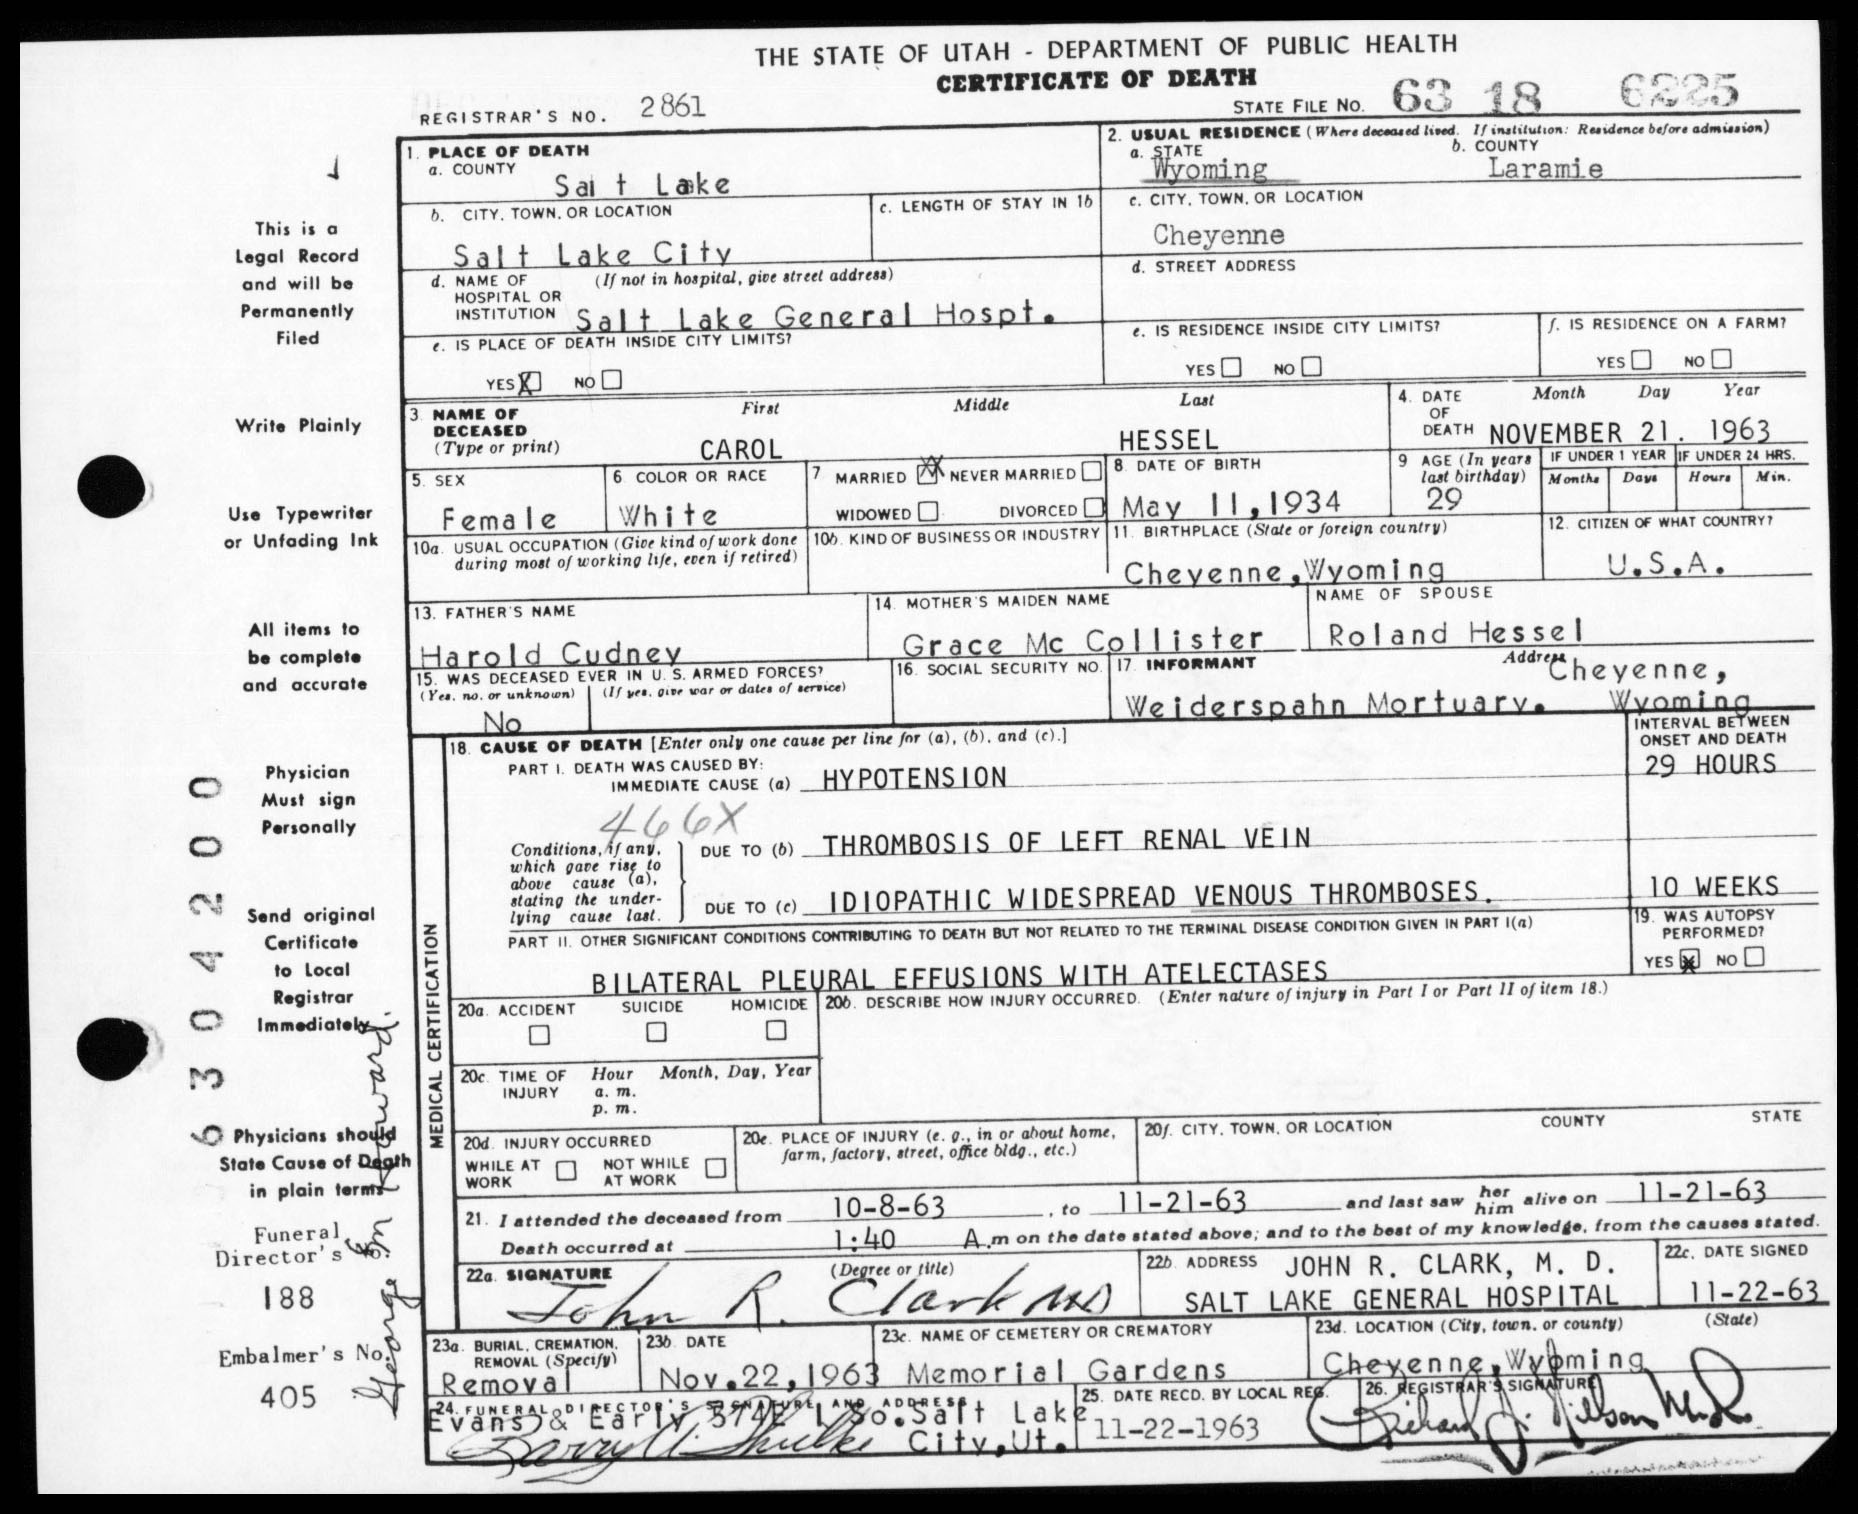 THE STATE OF UTAH - DEPARTMENT OF PUBLIC HEALTH
CERTIFICATE OF DEATH
REGISTRAR'S NO. 2861
STATE FILE NO. 63 18 6225
1. PLACE OF DEATH
a. COUNTY
Salt Lake
2. USUAL RESIDENCE (Where deceased lived. If institution: Residence before admission)
a. STATE b. COUNTY
Wyoming Laramie
b. CITY, TOWN, OR LOCATION
Salt Lake City
c. LENGTH OF STAY IN 1b
c. CITY, TOWN, OR LOCATION
Cheyenne
d. NAME OF HOSPITAL OR INSTITUTION (If not in hospital, give street address)
Salt Lake General Hospt.
d. STREET ADDRESS
e. IS PLACE OF DEATH INSIDE CITY LIMITS?
YES X NO
e. IS RESIDENCE INSIDE CITY LIMITS?
YES NO
f. IS RESIDENCE ON A FARM?
YES NO
3. NAME OF DECEASED (Type or print)
First Middle Last
CAROL HESSEL
4. DATE OF DEATH Month Day Year
NOVEMBER 21. 1963
5. SEX
Female
6. COLOR OR RACE
White
7 MARRIED XX NEVER MARRIED
WIDOWED DIVORCED
8. DATE OF BIRTH
May 11,1934
9 AGE (In years last birthday)
29
IF UNDER 1 YEAR IF UNDER 24 HRS.
Months Days Hours Min.
10a. USUAL OCCUPATION (Give kind of work done during most of working life, even if retired)
10b. KIND OF BUSINESS OR INDUSTRY
11. BIRTHPLACE (State or foreign country)
Cheyenne,Wyoming
12. CITIZEN OF WHAT COUNTRY?
U.S.A.
13. FATHER'S NAME
Harold Cudney
14. MOTHER'S MAIDEN NAME
Grace Mc Collister
NAME OF SPOUSE
Roland Hessel
15. WAS DECEASED EVER IN U. S. ARMED FORCES?
(Yes, no, or unknown) (If yes, give war or dates of service)
No
16. SOCIAL SECURITY NO.
17. INFORMANT Address
Weiderspahn Mortuary. Cheyenne, Wyoming
MEDICAL CERTIFICATION
18. CAUSE OF DEATH [Enter only one cause per line for (a), (b), and (c).]
INTERVAL BETWEEN ONSET AND DEATH
PART I. DEATH WAS CAUSED BY:
IMMEDIATE CAUSE (a) HYPOTENSION 29 HOURS
466X
Conditions, if any, which gave rise to above cause (a), stating the underlying cause last.
DUE TO (b) THROMBOSIS OF LEFT RENAL VEIN
DUE TO (c) IDIOPATHIC WIDESPREAD VENOUS THROMBOSES. 10 WEEKS
PART II. OTHER SIGNIFICANT CONDITIONS CONTRIBUTING TO DEATH BUT NOT RELATED TO THE TERMINAL DISEASE CONDITION GIVEN IN PART I(a)
BILATERAL PLEURAL EFFUSIONS WITH ATELECTASES
19. WAS AUTOPSY PERFORMED?
YES X NO
20a. ACCIDENT SUICIDE HOMICIDE
20b. DESCRIBE HOW INJURY OCCURRED. (Enter nature of injury in Part I or Part II of item 18.)
20c. TIME OF INJURY Hour Month, Day, Year
a. m.
p. m.
20d. INJURY OCCURRED
WHILE AT WORK NOT WHILE AT WORK
20e. PLACE OF INJURY (e. g., in or about home, farm, factory, street, office bldg., etc.)
20f. CITY, TOWN, OR LOCATION COUNTY STATE
21. I attended the deceased from 10-8-63, to 11-21-63 and last saw her him alive on 11-21-63
Death occurred at 1:40 A.m on the date stated above; and to the best of my knowledge, from the causes stated.
22a. SIGNATURE (Degree or title)
John R. Clark MD
22b. ADDRESS JOHN R. CLARK, M. D.
SALT LAKE GENERAL HOSPITAL
22c. DATE SIGNED
11-22-63
23a. BURIAL, CREMATION, REMOVAL (Specify)
Removal
23b. DATE
Nov.22,1963
23c. NAME OF CEMETERY OR CREMATORY
Memorial Gardens
23d. LOCATION (City, town, or county) (State)
Cheyenne,Wyoming
24. FUNERAL DIRECTOR'S SIGNATURE AND ADDRESS
Evans & Early 574E 1 So.Salt Lake
City,Ut.
25. DATE RECD. BY LOCAL REG.
11-22-1963
26. REGISTRAR'S SIGNATURE
Richard J. Nilson M.D.
This is a
Legal Record
and will be
Permanently
Filed
Write Plainly
Use Typewriter
or Unfading Ink
All items to
be complete
and accurate
Physician
Must sign
Personally
Send original
Certificate
to Local
Registrar
Immediately
Physicians should
State Cause of Death
in plain terms
Funeral
Director's
188
Embalmer's No.
405
George M Howard.
6304200